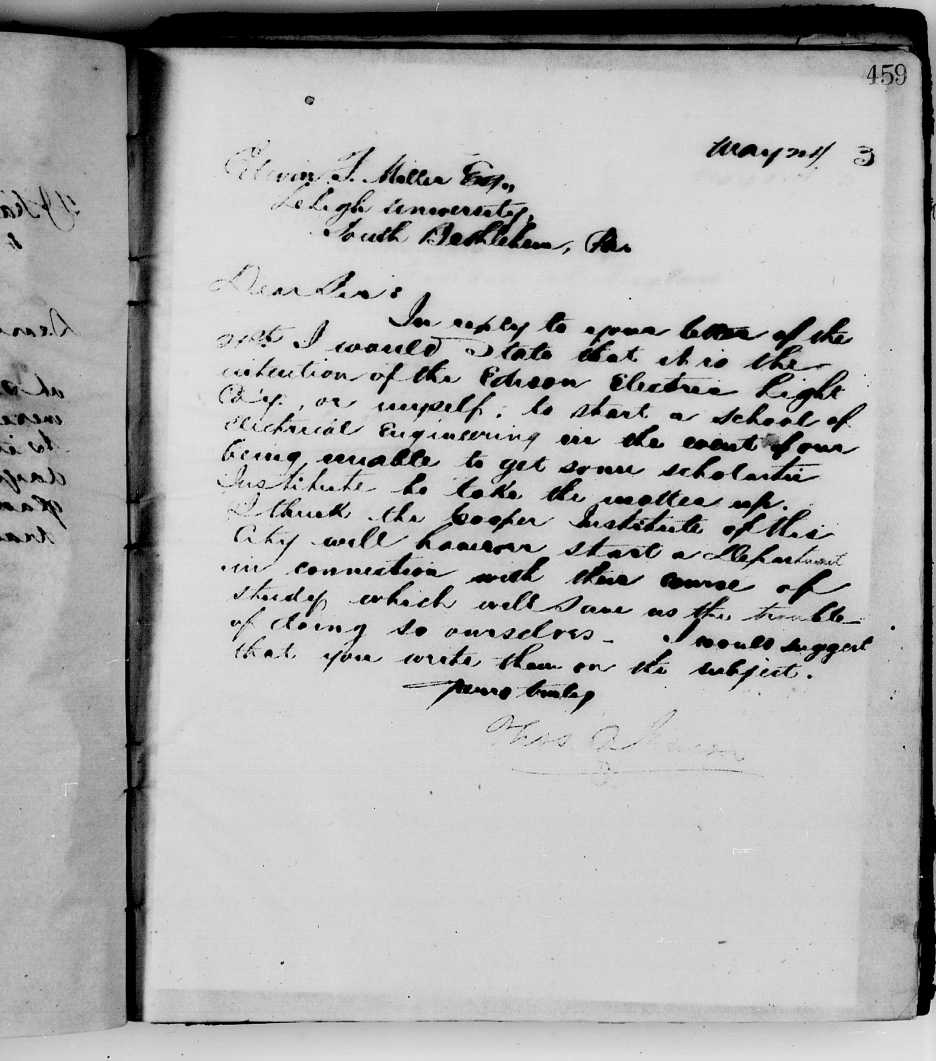 459
May 24 3
Edwin F. Miller Esq.,
Lehigh University,
South Bethlehem, Pa.
Dear Sir:
In reply to your letter of the
I would State that it is the
intention of the Edison Electric Light
Co'y., or myself, to start a school of
Electrical Engineering in the event of our
being unable to get some scholastic
Institute to take the matter up.
I think the Cooper Institute of this
City will however start a Department
in connection with their course of
study which will save us the trouble
of doing so ourselves - I would suggest
that you write them on the subject.
Yours truly
Thos A Edison